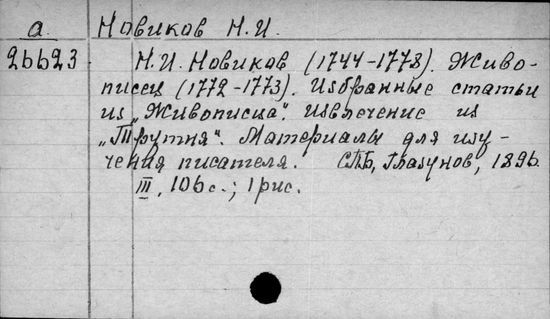 а Новиков Н.И.
26623 Н.И. Новиков (1744-1778). Живо-
писец (1772-1773). Избранные статьи
из „Живописца". Извлечение из
„Трутня". Материалы для изу-
чения писателя. СПБ, Глазунов, 1896.
III, 106 с.; 1 рис.